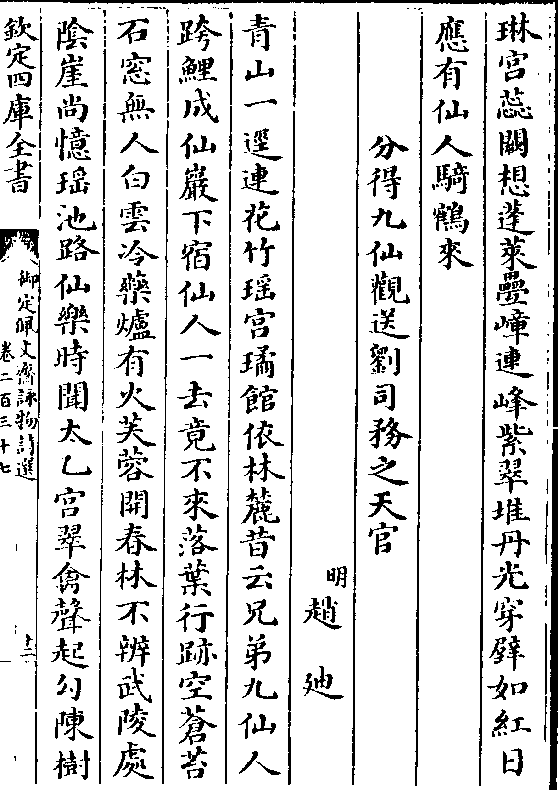 琳宮蕊闕想蓬萊疊嶂連峰紫翠堆丹光穿壁如紅日
應有仙人騎鶴來
分得九仙觀送劉司務之天官
明趙迪
青山一逕連花竹瑶宮璚館依林麓昔云兄弟九仙人
跨鯉成仙巖下宿仙人一去竟不來落葉行跡空蒼苔
石窓無人白雲冷藥爐有火芙蓉開春林不辨武陵處
陰崖尚憶瑶池路仙樂時聞太乙宮翠禽聲起勾陳樹
欽定四庫全書
御定佩文齋詠物詩選
卷二百三十七
十二